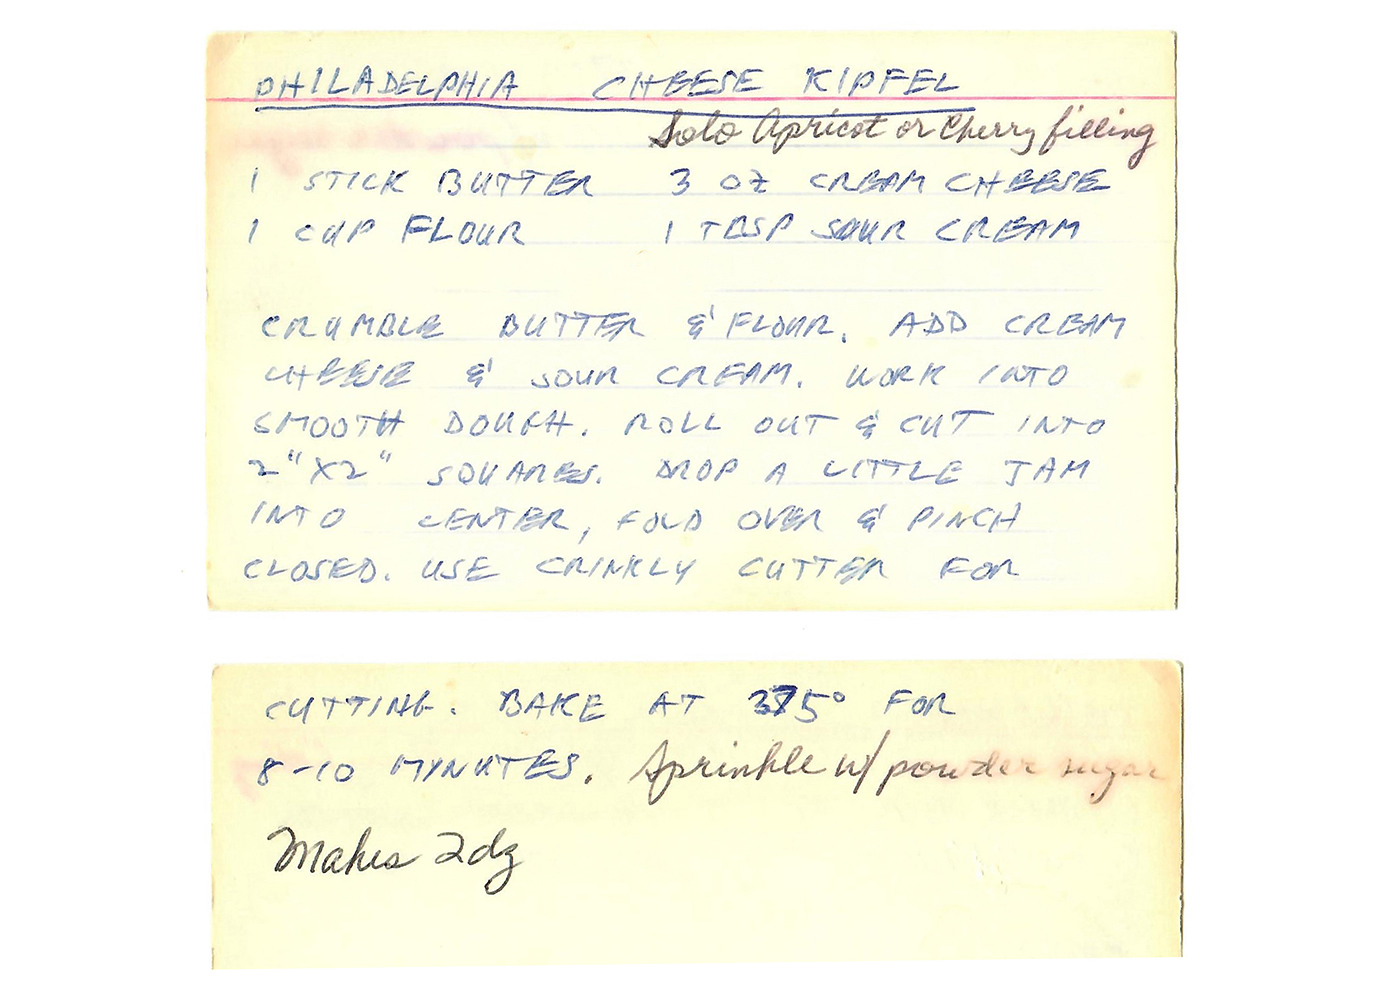 PHILADELPHIA CHEESE KIPFEL
Solo Apricot or Cherry filling
1 STICK BUTTER 3 OZ CREAM CHEESE
1 CUP FLOUR 1 TBSP SOUR CREAM
CRUMBLE BUTTER & FLOUR. ADD CREAM
CHEESE & SOUR CREAM. WORK INTO
SMOOTH DOUGH. ROLL OUT & CUT INTO
2" X 2" SQUARES. DROP A LITTLE JAM
INTO CENTER, FOLD OVER & PINCH
CLOSED. USE CRINKLY CUTTER FOR
CUTTING. BAKE AT 375° FOR
8-10 MINUTES. Sprinkle w/ powder sugar
Makes 2dz